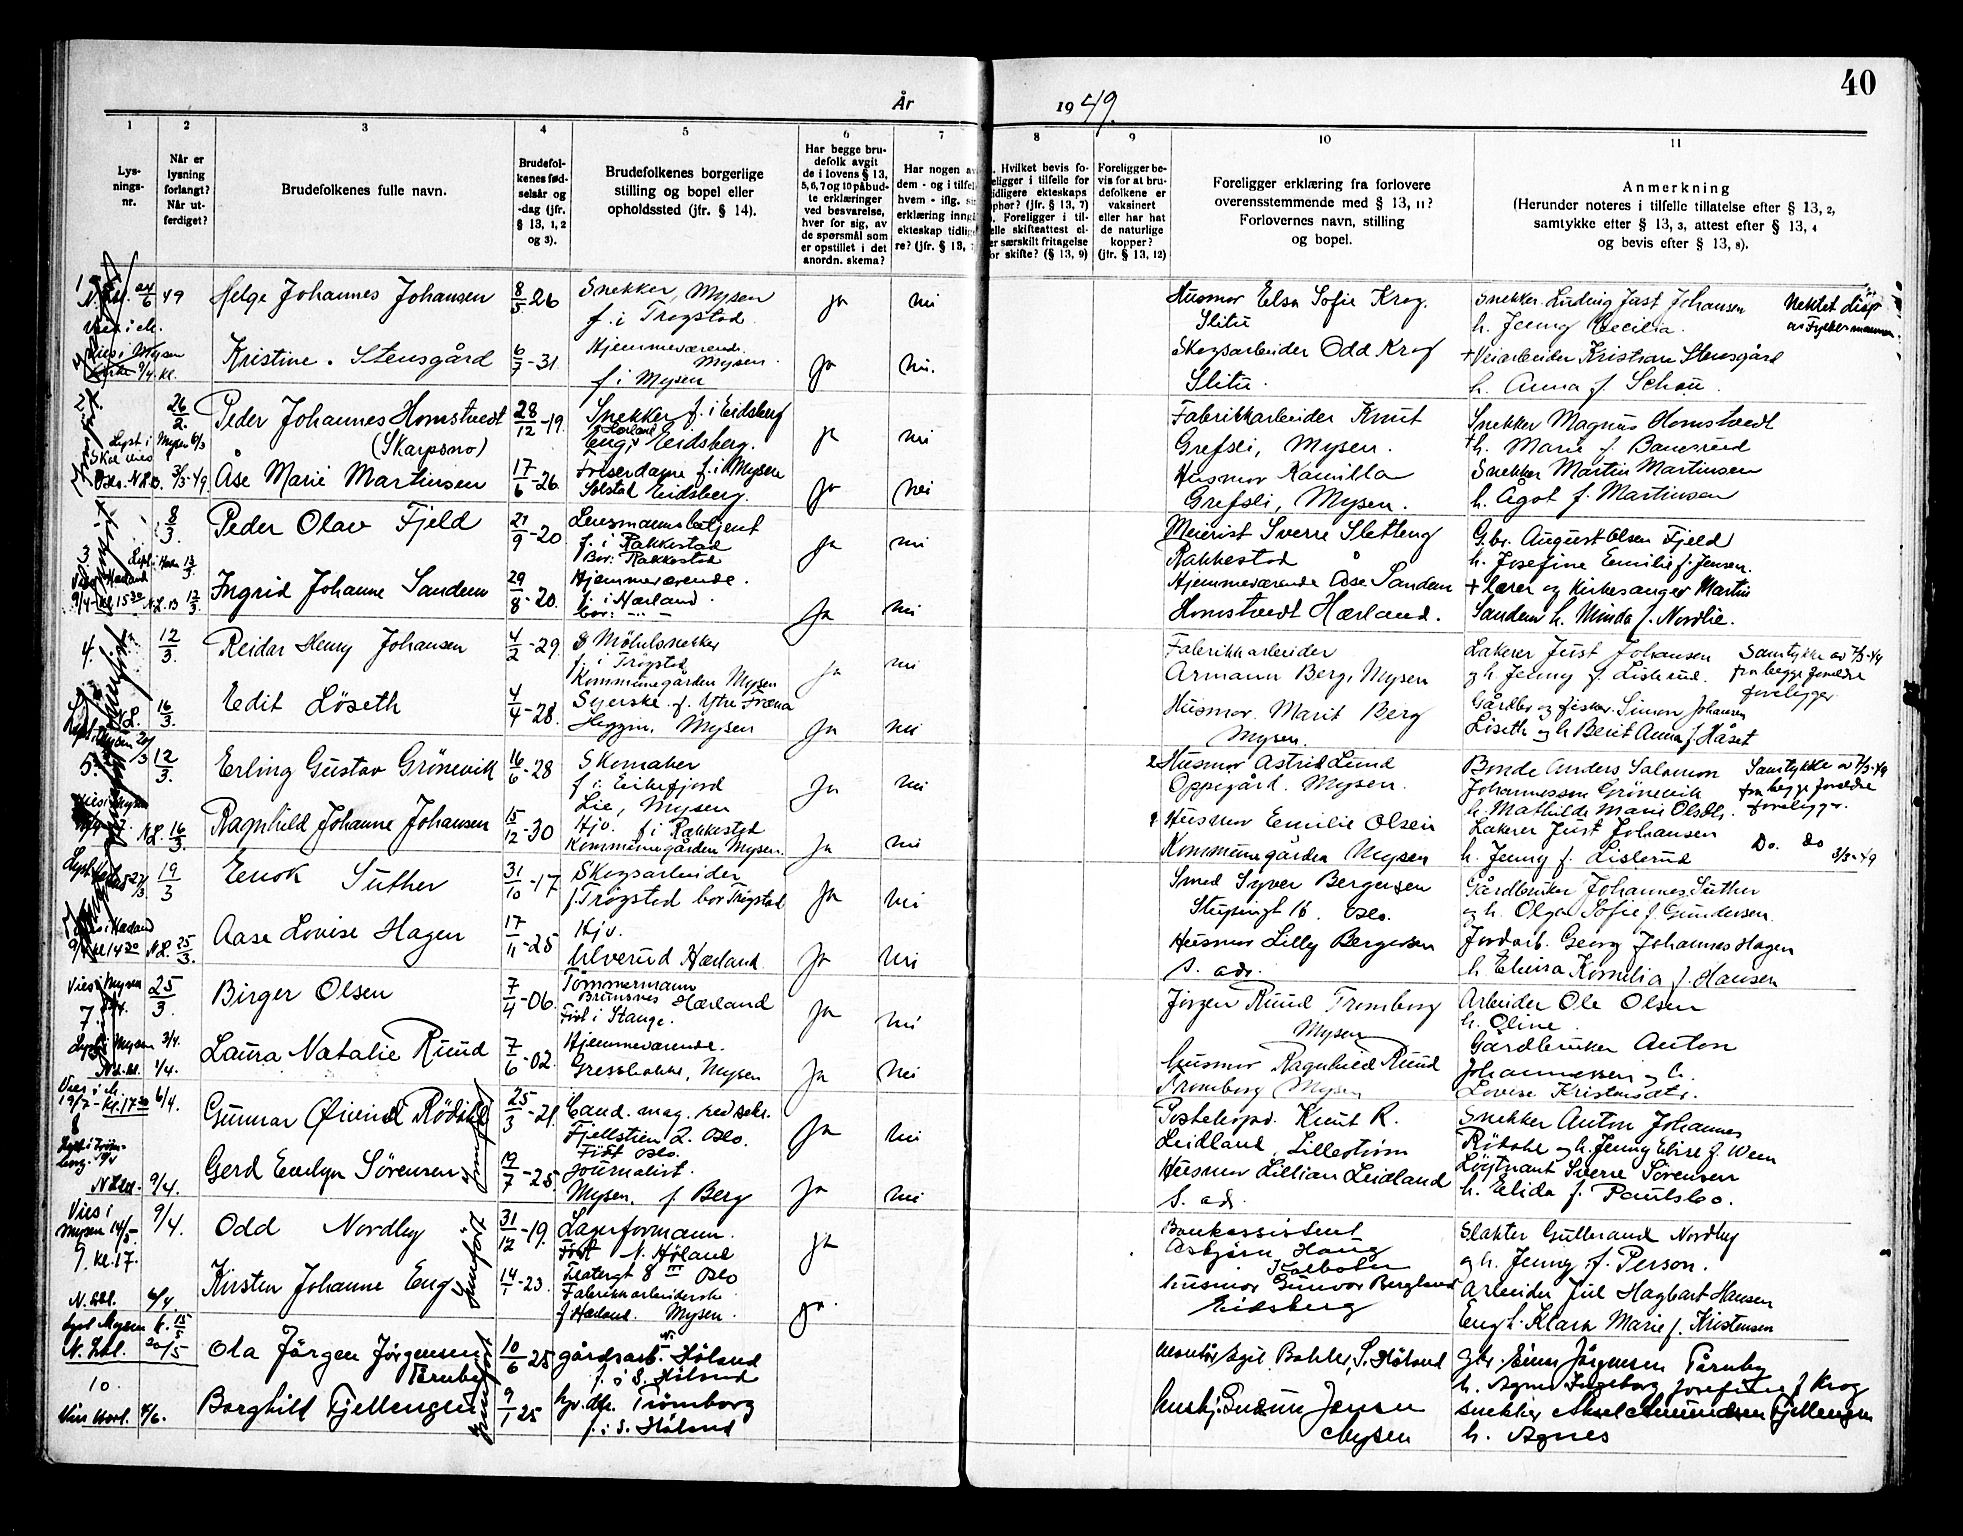 40
År 1949.
1
2
3
4
5
6
7
8
9
10
11
Lysnings-
nr.
Når er
lysning
forlangt?
Når ut-
ferdiget?
Brudefolkenes fulle navn.
Brudefol-
kenes fød-
selsår og
-dag (jfr.
§ 13, 1, 2
og 3).
Brudefolkenes borgerlige
stilling og bopel eller
opholdssted (jfr. § 14).
Har begge bru-
defolk avgit
de i lovens § 13,
5, 6, 7 og 10 påbud-
te erklæringer
ved besvarelse,
hver for sig, av
de spørsmål som
er opstillet i det
anordn. skema?
Har nogen av
dem - og i tilfel
hvem - iflg. sin
erklæring inng
ekteskap tidlig
re? (jfr. § 13,
Hvilket bevis fo-
eligger i tilfelle for
idligere ekteskaps
phør? (jfr. § 13, 7)
. Foreligger i til-
elle skifteattest el-
er særskilt fritagelse
or skifte? (§ 13, 9)
Foreligger be-
vis for at bru-
defolkene er
vaksinert
eller har hat
de naturlige
kopper?
(jfr. § 13, 12)
Foreligger erklæring fra forlovere
overensstemmende med § 13, 11?
Forlovernes navn, stilling
og bopel.
Anmerkning
(Herunder noteres i tilfelle tillatelse efter § 13, 2,
samtykke efter § 13, 3, attest efter § 13, 4
og bevis efter § 13, 8).
24/6 49 Helge Johannes Johansen 8/5-26 Snekker, Mysen
f. i Trøgstad ja nei
Husmor Elsa Sofie Krog.
Slitu
Snekker Ludvig Just Johansen
h. Jenny Cecilia.
Nektet disp
av Fylkesmannen
Kristine Stensgård 6/7-31 Hjemmeværende
Mysen
f i Mysen ja nei.
Skogsarbeider Odd Krog
Slitu.
+ Veiarbeider Kristian Stensgård
h. Anna f. Schou.
2 26/2. Peder Johannes Homstvedt
(Skarpsno) 28/12-19 Snekker f. i Eidsberg
Hærland
Eng, Eidsberg. ja nei
Fabrikkarbeider Knut
Grefsli, Mysen.
Snekker Magnus Homstvedt
+ h. Marie f.
Lyst i Mysen 6/3
Åse Marie Martinsen 17/6-26 Frisørdame f. i Mysen
Solstad Eidsberg. ja nei
Husmor Kamilla
Grefsli, Mysen.
Snekker Martin Martinsen
h. Ågot f. Martinsen
3 8/3. Peder Olav Fjeld 21/9-20 Lensmannsbetjent
f. i Rakkestad
Bor: Rakkestad ja nei
Meierist Sverre Sletteng
Rakkestad
G.br. August Olsen Fjeld
h. Josefine Emilie f. Jensen.
9/4 - kl 15 30 N.L. 12/3.
Ingrid Johanne Sandem 29/8-20. Hjemmeværende.
f. i Hærland.
bor: ja nei
Hjemmeværende Åse Sandem
Homstvedt Hærland.
+ lærer og kirkesanger Martin
Sandem h. Minda f. Nordlie.
4. 12/3. Reidar Henry Johansen 4/2-29 Möbelsnekker
f. i Trøgstad
Kommunegården Mysen ja nei
Fabrikkarbeider
Armann Berg, Mysen
Lakerer Just Johansen
og h. Jenny f. Lislerud.
Samtykke av 7/3-49
fra begge foreldre
foreligger
16/3. Edit Löseth 4/4-28. Syerske f. Ytre Fræna
Heggin, Mysen ja nei
Husmor Marit Berg
Mysen.
Gårdbr og fisker Simon Johansen
Löseth og h Berit Anna f. Håset
5. 12/3. Erling Gustav Grönevik 16/6-28 Skomaker
f. i Eikefjord
Lie, Mysen ja nei
Husmor Astrid Lund
Oppegård. Mysen.
Bonde Anders Salamon
Johannessen Grönevik
h. Mathilde Marie Olsdtr.
Samtykke av 7/3-49
fra begge foreldre
foreligger.
N.L. 16/3. Ragnhild Johanne Johansen 15/12-30 Hjv. f i Rakkestad
Kommunegården Mysen. ja nei
Husmor Emilie Olsen
Kommunegården Mysen
Lakerer Just Johansen
h. Jenny f. Lislerud
Do. do 3/3-49
19/3 Enok Suther 31/10-17 Skogsarbeider
f. Trøgstad bor Trøgstad ja nei
Smed Syver Bergersen
16. Oslo.
Gårdbruker Johannes Suther
og h. Olga Sofie f. Gundersen.
9/4 kl 14 30 N.L. 25/3.
Aase Lovise Hagen 17/11-25 Hjv.
Ulverud Hærland. ja nei
Husmor Lilly Bergersen
s. adr.
Jordarb. Georg Johannes Hagen
h. Elvira Kornelia f. Hansen
Vies i Mysen
7. 25/3. Birger Olsen 7/4-06. Tømmermann
Hærland
Född i Stange. ja nei
Jörgen Ruud Tromborg
Mysen
Arbeider Ole Olsen
h. Oline.
Lyst i Mysen 3/4.
1/4. Laura Natalie Ruud 7/6-02 Hjemmeværende.
Mysen ja nei
husmor Ragnhild Ruud
Tromborg Mysen
Gårdbruker Anton
Johannessen og h.
Lovise Kristensdtr.
19/7 - kl. 17 30 6/4.
8 Gunnar Øivind Rödahl 25/3-21. Cand. mag. red.sekr.
Fjellstien 2. Oslo.
Född Oslo. ja nei
Postekspd. Knut R.
Leidland, Lilleström
Snekker Anton Johannes
Rödahl og h. Jenny Elise f. Ween
9/4. Gerd Evelyn Sörensen 19/7-25. Journalist.
Mysen. f. Berg ja nei
Husmor Lillian Leidland
s. ad.
Löytnant Sverre Sörensen
h. Elida f. Paulsbo.
Jevnført
Vies i
Mysen 14/5
9. kl. 17. 9/4. Odd Nordby 31/12-19. Lagerformann.
Född N. Höland
Teatergt 8 III Oslo ja
Bankassistent
Asbjörn Haug
Slakter Gulbrand Nordby
og h. Jenny f. Person.
Kirsten Johanne Eng 14/1-23. Fabrikkarbeiderske
f Hærland. Mysen. ja.
husmor Gunvor Bergland
Eidsberg
Arbeider Jul Hagbart Hansen
Eng h. Klara Marie f. Kristensen
Jevnført
Lyst Mysen k. 15/5
20/5 Ola Jörgen Jörgensen
Tørnby 10/6 25 gårdsarb. N. Höland
f. i S. Höland
montör Egil Bakler, S. Höland
gbr. Einar Jörgensen Tårnby
h. Agnes Ingeborg Josefine f Krog
10. Borghild Fjellengen 9/1 25 hjv. dtr. Trömborg
f. i S. Höland
hushj. Gudrun Jensen
Mysen
snekker Aksel Amundsen Fjellengen
h. Agnes
Jevnført